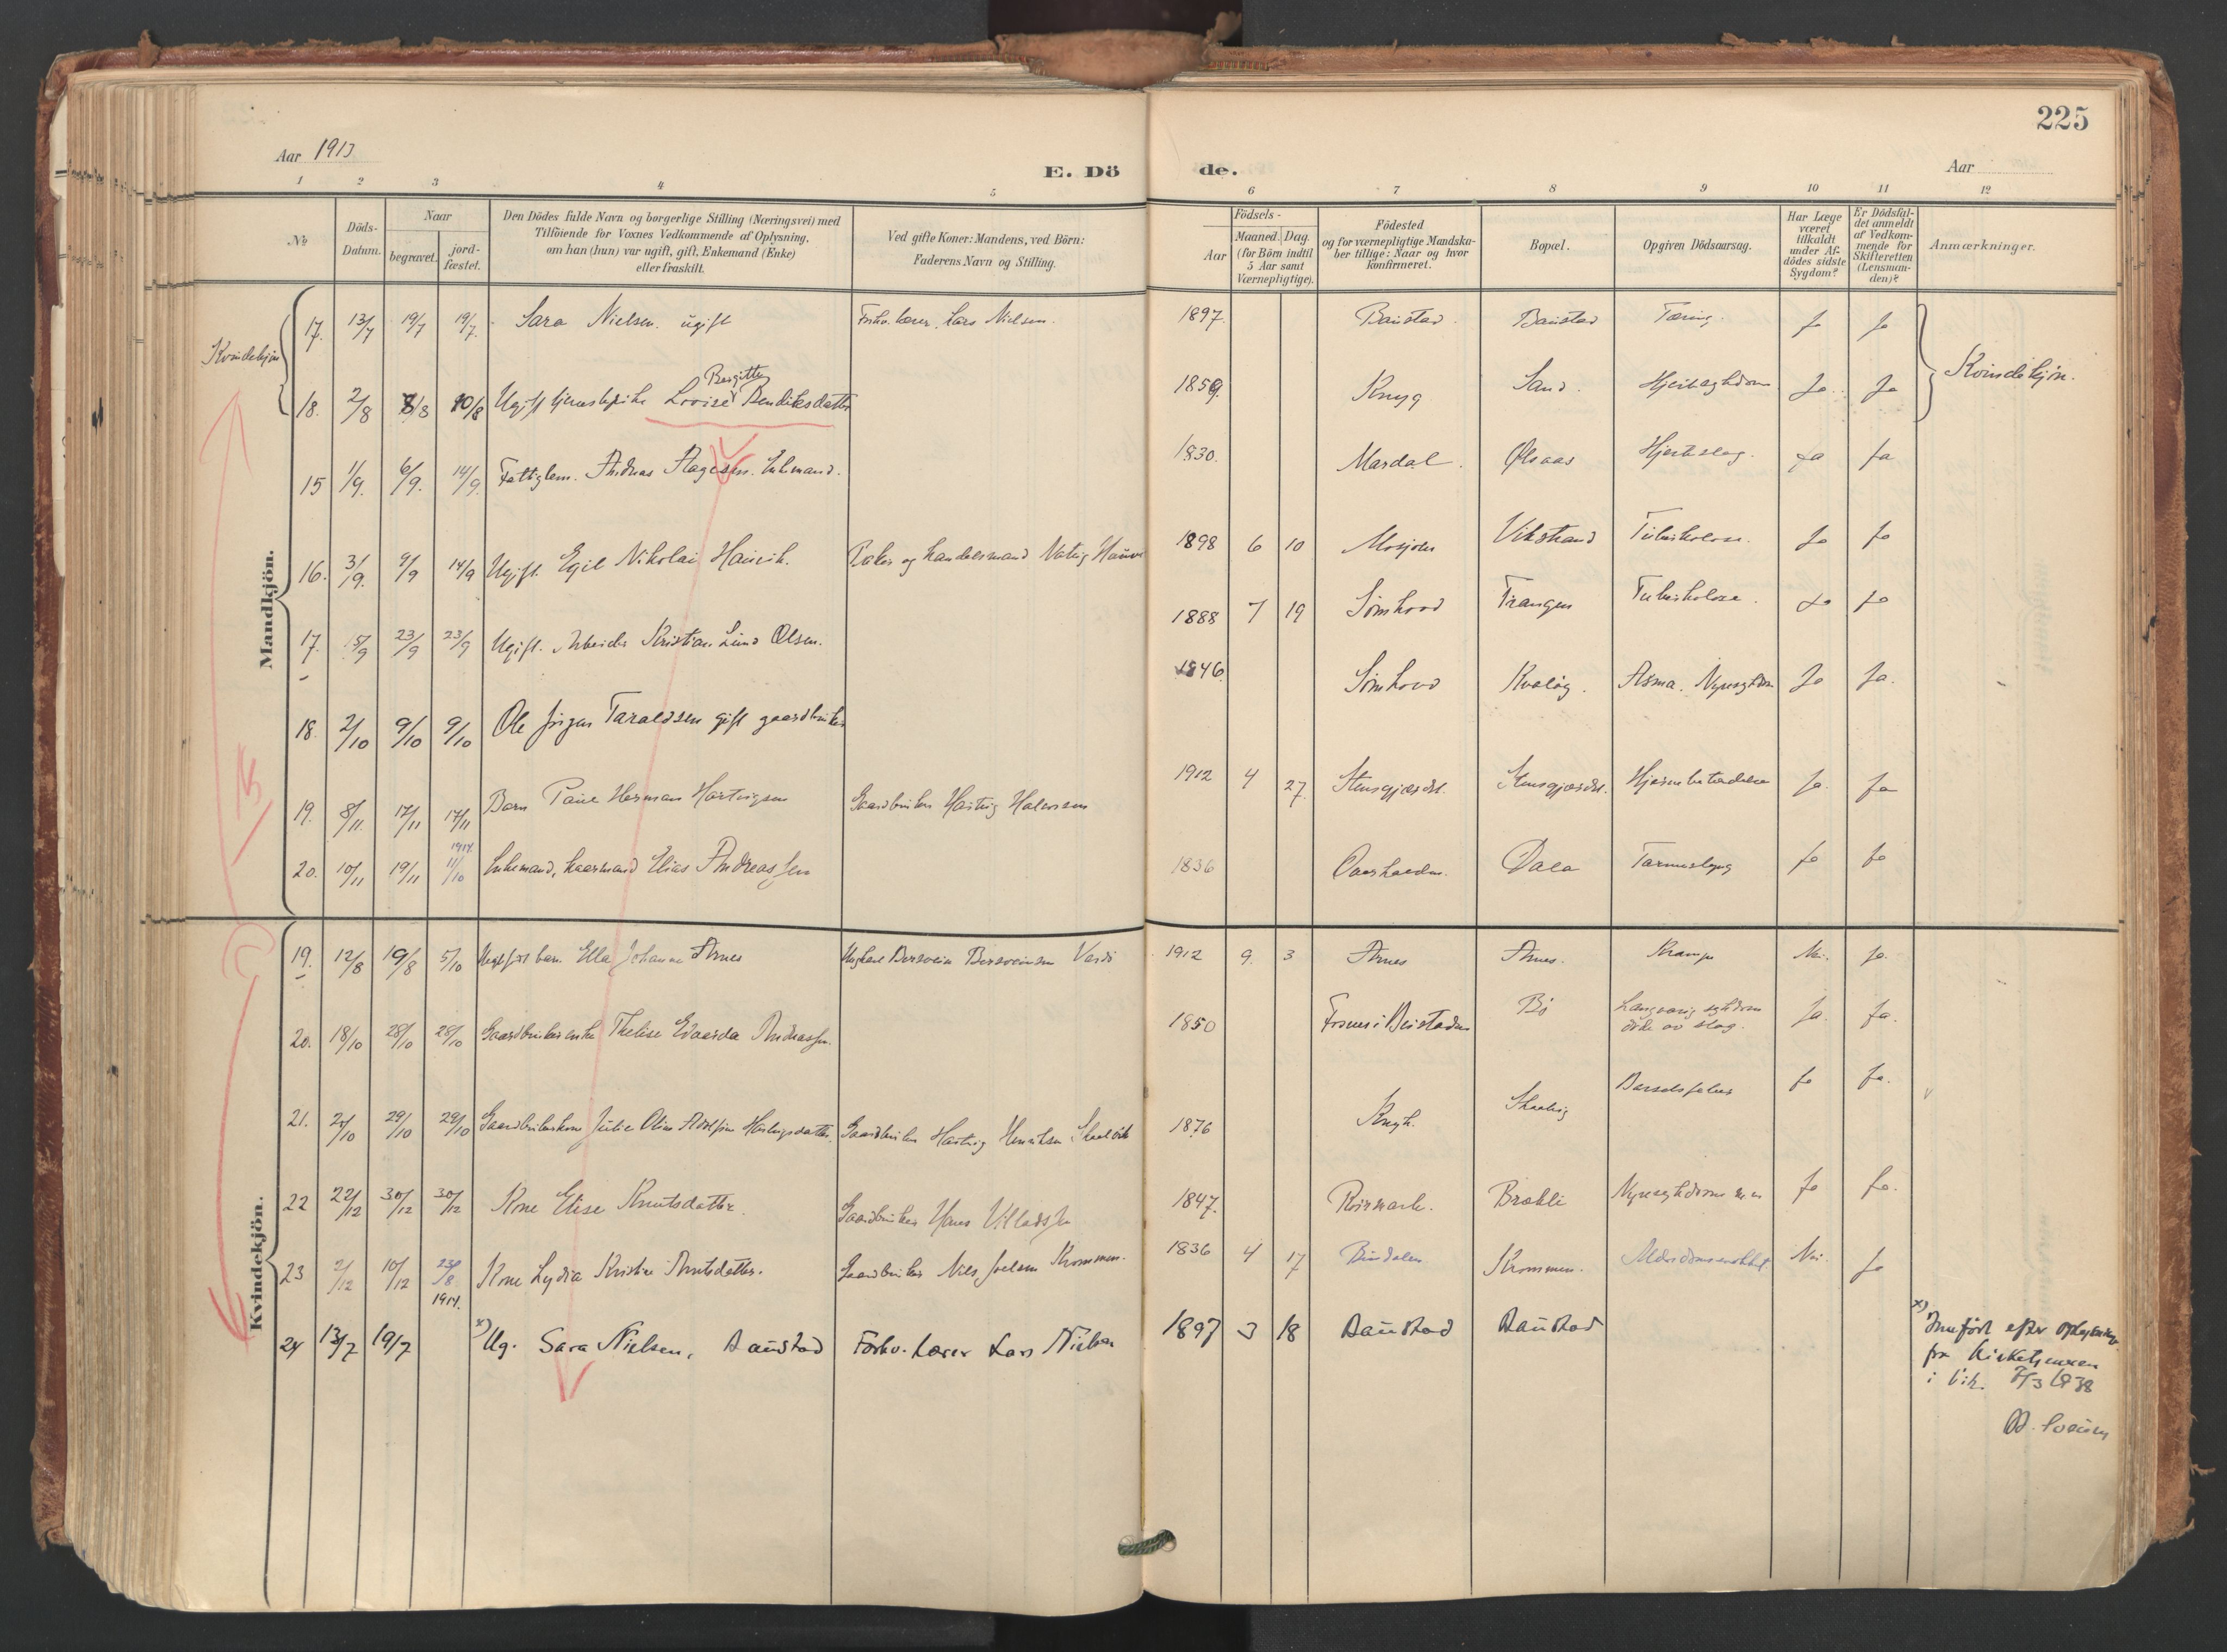 225
Aar 1913
E. Dö
de.
Aar
1 2 3 4 5 6 7 8 9 10 11 12
No
Döds-Datum.
Naar
begravet.
jord-fæstet.
Den Dödes fulde Navn og borgerlige Stilling (Næringsvei) med
Tilföiende for Voxnes Vedkommende af Oplysning,
om han (hun) var ugift, gift, Enkemand (Enke)
eller fraskilt.
Ved gifte Koner: Mandens, ved Börn:
Faderens Navn og Stilling.
Födsels-
Aar
Maaned. Dag.
(for Börn indtil
5 Aar samt
Værnepligtige).
Födested
og for værnepligtige Mandska-
ber tillige: Naar og hvor
konfirmeret.
Bopæl.
Opgiven Dödsaarsag.
Har Læge
været
tilkaldt
under Af-
dödes sidste
Sygdom?
Er Dödsfal-
det anmeldt
af Vedkom-
mende for
Skifteretten
(Lensman-
den)?
Anmærkninger.
Kvindekjøn
17. 13/7 19/7 19/7 Sara Nielsen. ugift Forhv. lærer, Lars Nielsen. 1897. Baustad. Baustad Tæring. Ja Ja
Kvindekjøn.
Bergitte
18. 2/8 8/8 10/8 Ugift tjenestepike Lovise Bendiksdatter 1859. Kvyg Sand. Hjertesygdom Ja Ja
Mandkjön.
15 1/9. 6/9. 14/9. Fattiglem. Andreas Aagesen. Enkemand. 1830. Mardal. Ølsaas Hjerteslag. Ja Ja
16. 3/9. 9/9 14/9 Ugift. Egil Nikolai Hauvik. og handelsmand 1898 6 10 Mosjøen Vikstrand Tuberkolose. Ja Ja
17. 15/9 23/9 23/9 Ugift. Arbeider Kristian Lund Olsen. 1888 7 19 Sømhovd Trangen Tuberkolose. Ja Ja
18. 2/10 9/10 9/10 Ole Jørgen Taraldsen gift gaardbruker 1846. Sømhovd Kvaløy. Asma. Nyresygdom Ja Ja.
19. 8/11. 17/11 17/11 Barn Paul Herman Hartvigsen Gaardbruker Hartvig Halvorsen 1912 4 27. Stensgjærdet. Stensgjærdet. Hjernebetændelse Ja. Ja
1914.
20. 10/11 19/11 11/10 Enkemand, kaarmand Elias Andreassen 1836 Dala Tarmeslyng Ja Ja
Kvindekjön.
19. 12/8 19/8 5/10 barn. Ella Johanne Arnes Ungkarl Bersvein Bersveinsen 1912 9. 3 Arnes Arnes. Krampe Nei. Ja.
20. 18/10 28/10 28/10 Gaardbrukerenke Thelise Edvarda Andreassen. 1850 Fosnes i Beistaden Bø Langvarig sygdom
døde av slag. Ja. Ja.
21. 21/10 29/10 29/10 Gaardbrukerkone Julie Oline Adolfine Hartvigsdatter. Gaardbruker Hartvig Henriksen Skaalvik 1876 Kvyk. Skaalvig Barselsfeber Ja Ja.
22 22/12 30/12 30/12 Kone Elise Knutsdatter. Gaardbruker Hans Villadsen 1847. Reismark. Brækli Nyresygdom m m Ja Ja.
23 2/12 10/12 23/8 1914. Kone Lydia Kristine Knutsdatter. Gaardbruker Nils Joelsen Krommen. 1836 4 17 Bindalen Krommen. Nei. Ja
24 13/7 19/7 x) Ug. Sara Nielsen, Baustad Forhv. Lærer Lars Nielsen 1897 3 18 Baustad Baustad
x) Innført efter oplysning
fra kirketjeneren
i Vik. 7/3 1938